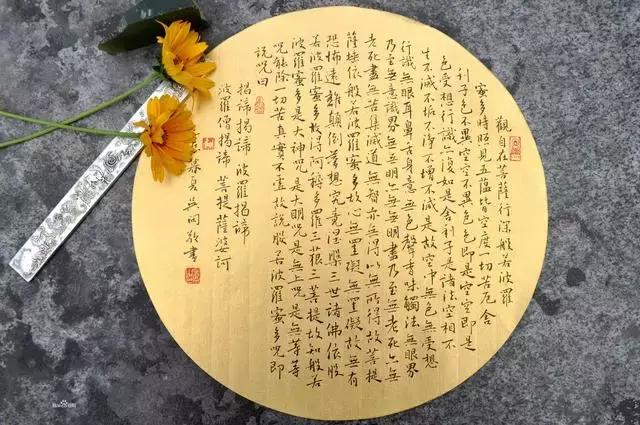 觀自在菩薩行深般若波羅
蜜多時照見五蘊皆空度一切苦厄舍
利子色不異空空不異色色即是空空即是
色受想行識亦復如是舍利子是諸法空相不
生不滅不垢不淨不增不減是故空中無色無受想
行識無眼耳鼻舌身意無色聲香味觸法無眼界
乃至無意識界無無明亦無無明盡乃至無老死亦無
老死盡無苦集滅道無智亦無得以無所得故菩提
薩埵依般若波羅蜜多故心無罣礙無罣礙故無有
恐怖遠離顛倒夢想究竟涅槃三世諸佛依般
若波羅蜜多故得阿耨多羅三藐三菩提故知般若
波羅蜜多是大神咒是大明咒是無上咒是無等等
咒能除一切苦真實不虛故說般若波羅蜜多咒即
說咒曰
揭諦揭諦 波羅揭諦
波羅僧揭諦 菩提薩婆訶
夏吳敬書
Baidu百科